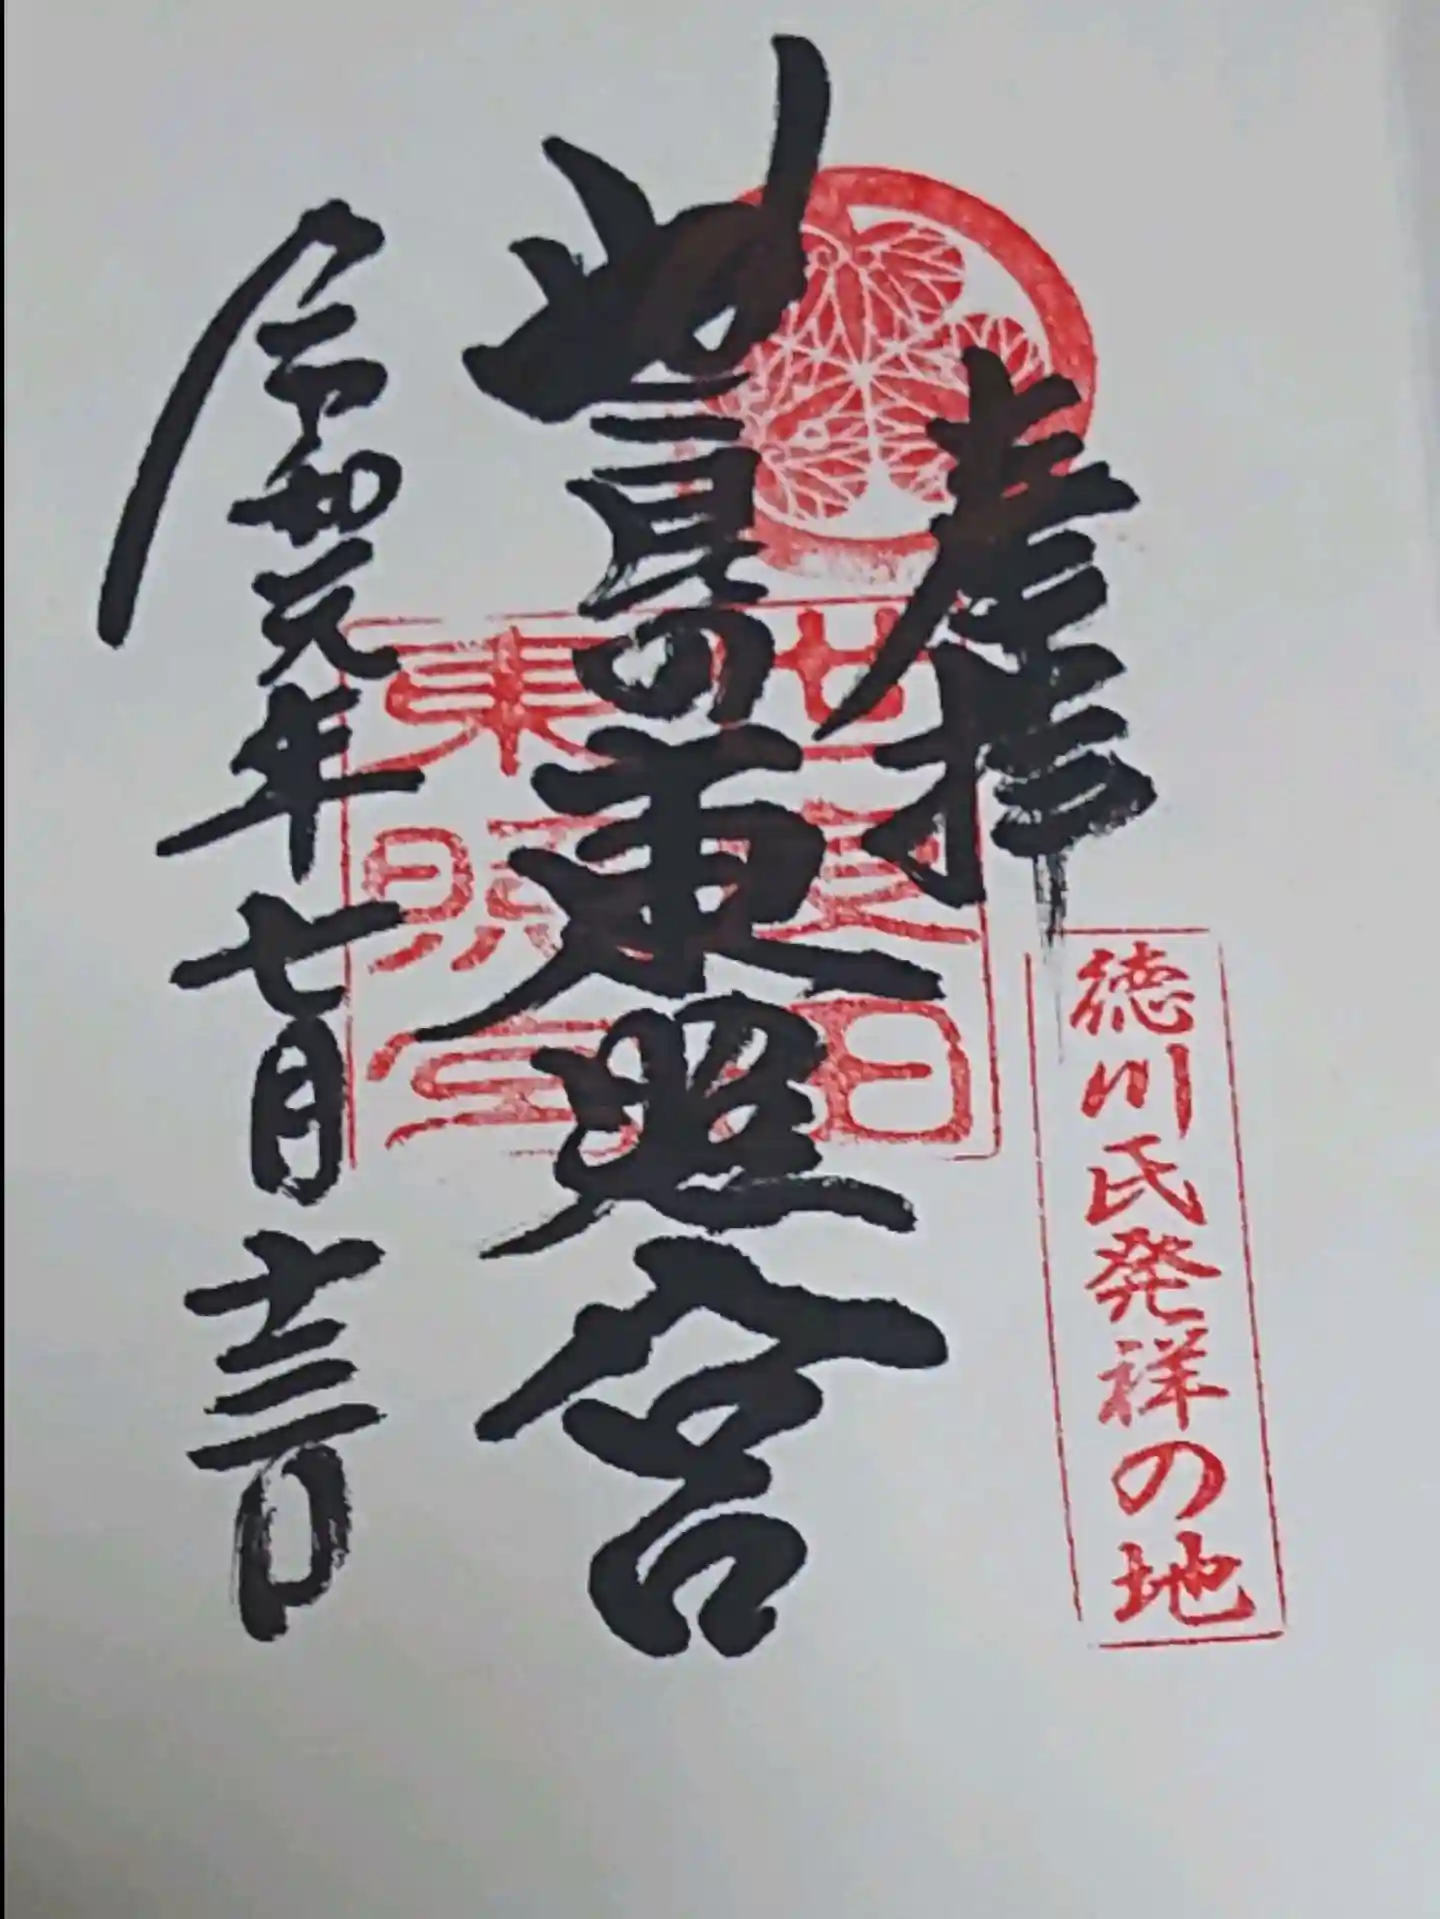 奉拝
徳川氏発祥の地
世良田東照宮
世良田
東照宮
令和元年七月十三日